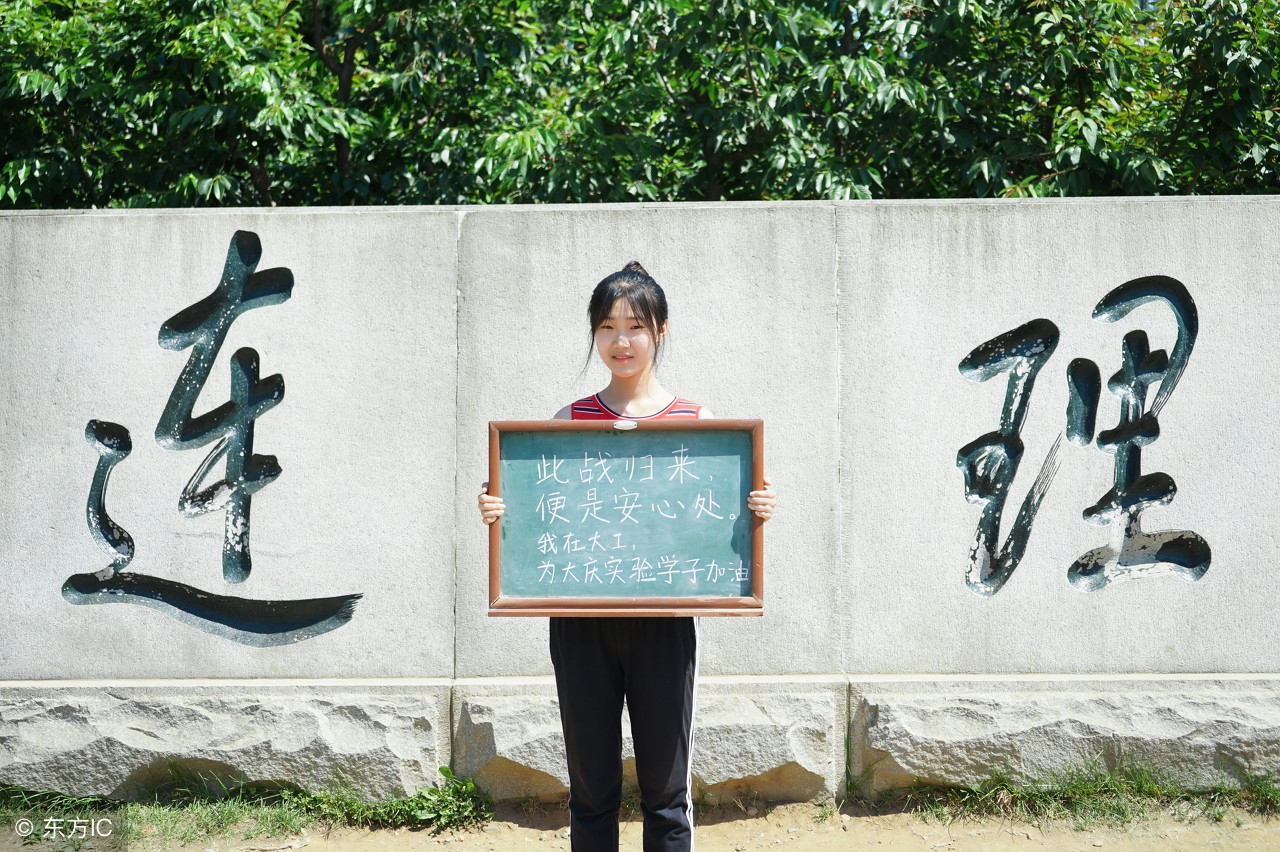 连
理
此战归来，
便是安心处。
我在大工，
为大庆实验学子加油
© 东方IC